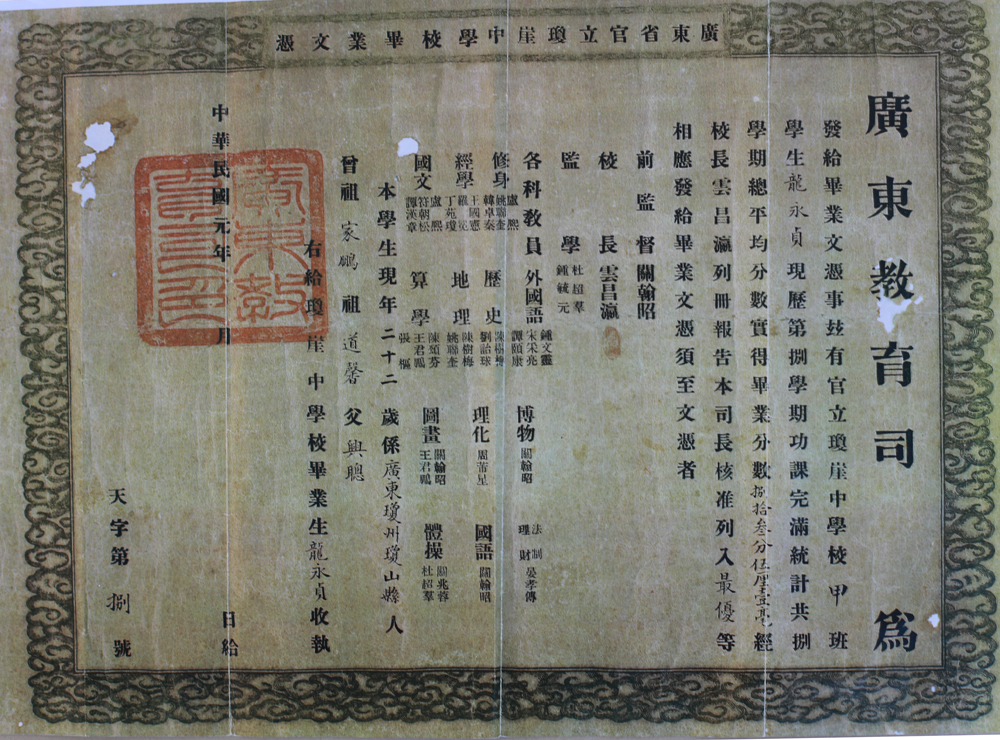 廣東省官立瓊崖中學校畢業文憑
廣東教育司 為
發給畢業文憑事茲有官立瓊崖中學校甲班
學生龍永貞現歷第捌學期功課完滿統計共捌
學期總平均分數實得畢業分數捌拾叁分伍厘壹毫經
校長雲昌瀛列冊報告本司長核准列入最優等
相應發給畢業文憑須至文憑者
前監督關翰昭
校長雲昌瀛
監學 杜紹羣 鍾毓元
各科教員 外國語 鍾文靈 宋采亮 譚頤康 博物 關翰昭 法制理財 晏孝傅
修身 盧熙 姚聯奎 韓卓秦 歷史 陳樹梅 劉詒球 理化 周芾星 國語 關翰昭
經學 王國憲 丁苑瓊 地理 陳樹梅 姚聯奎
國文 盧熙 符朝松 譚漢章 算學 陳頌芬 王君鵬 張樞 圖畫 關翰昭 王君鵬 體操 關兆蓉 杜紹羣
本學生現年二十二歲係廣東瓊州瓊山縣人
曾祖家鵬 祖道馨 父興聰
右給瓊崖中學校畢業生龍永貞收執
中華民國元年 月 日給
天字第捌號